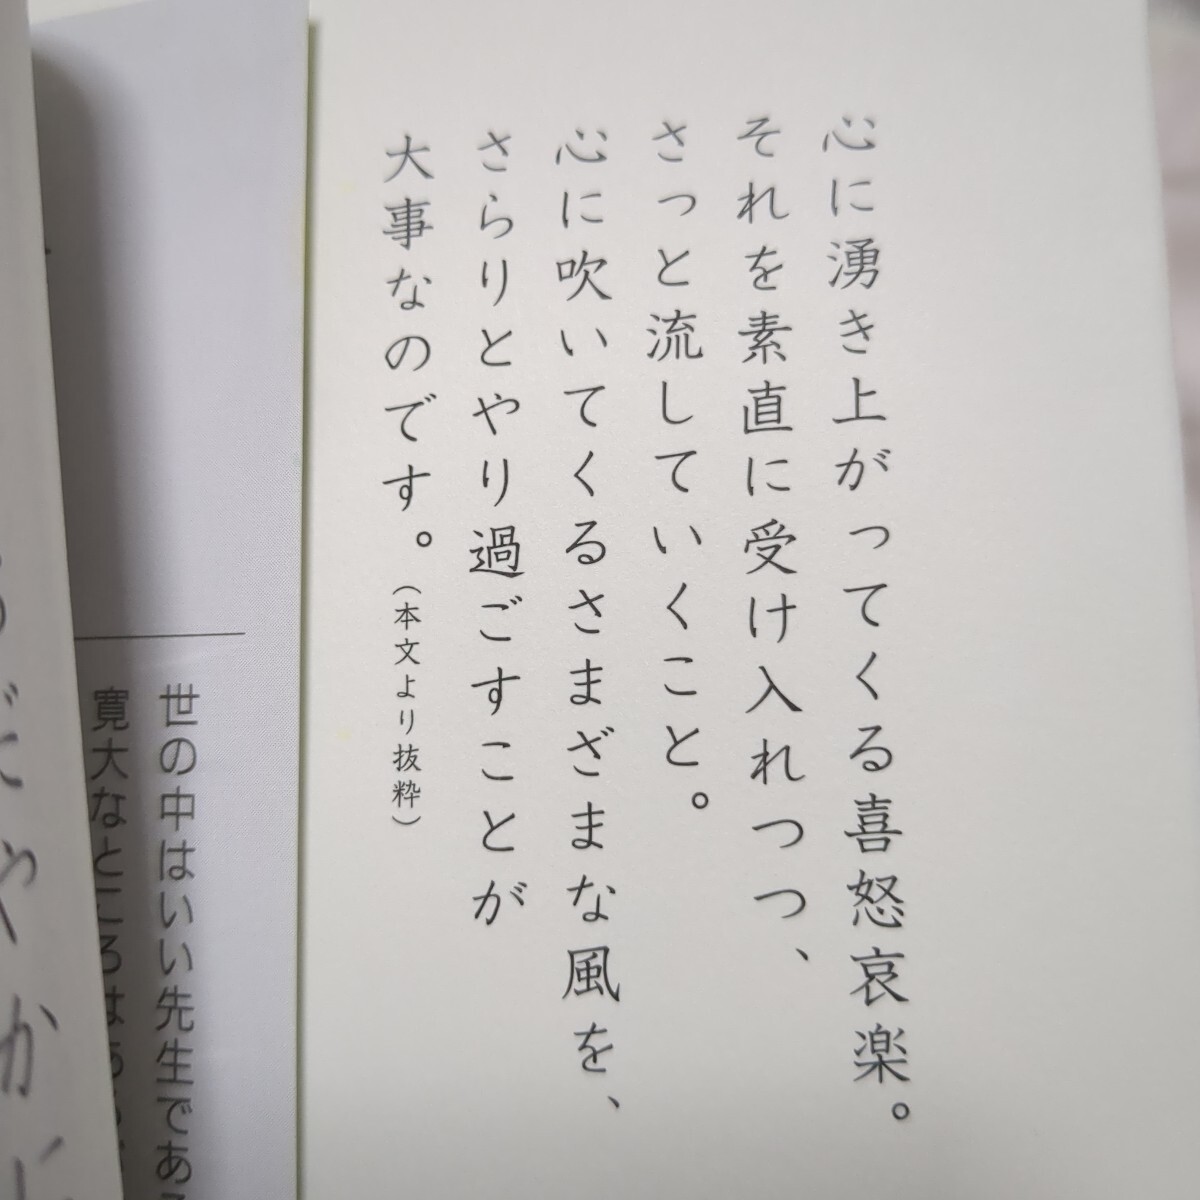 心に湧き上がってくる喜怒哀楽。
それを素直に受け入れつつ、
さっと流していくこと。
心に吹いてくるさまざまな風を、
さらりとやり過ごすことが
大事なのです。（本文より抜粋）
世の中はいい先生である
寛大なところはある
だやか